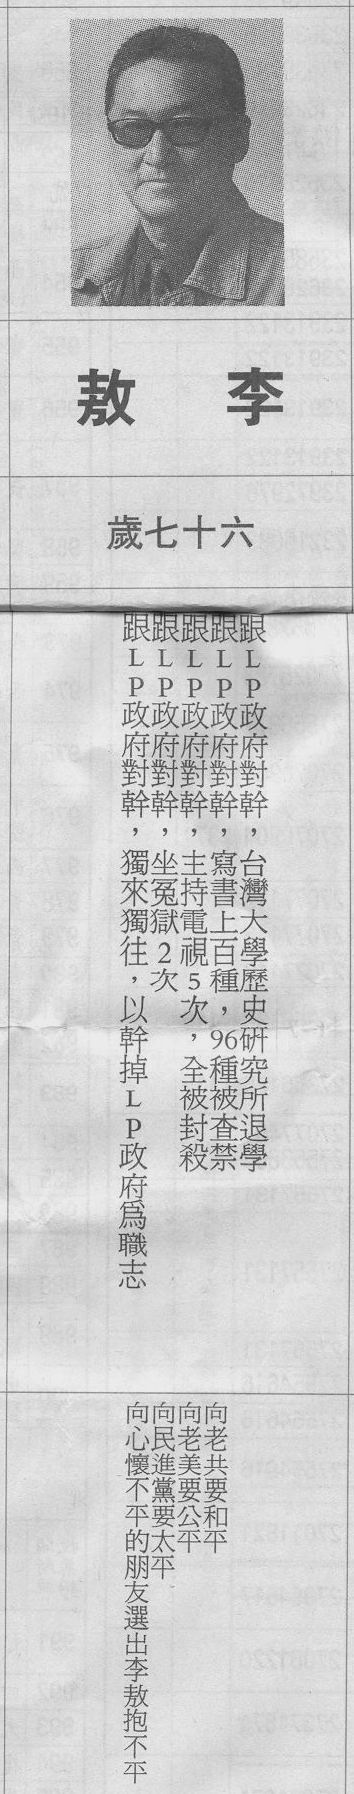 李敖
六十七歲
跟LP政府對幹，台灣大學歷史研究所退學
跟LP政府對幹，寫書上百種，96種被查禁
跟LP政府對幹，主持電視5次，全被封殺
跟LP政府對幹，坐冤獄2次
跟LP政府對幹，獨來獨往，以幹掉LP政府爲職志
向老共要和平
向老美要公平
向民進黨要太平
向心懷不平的朋友選出李敖抱不平